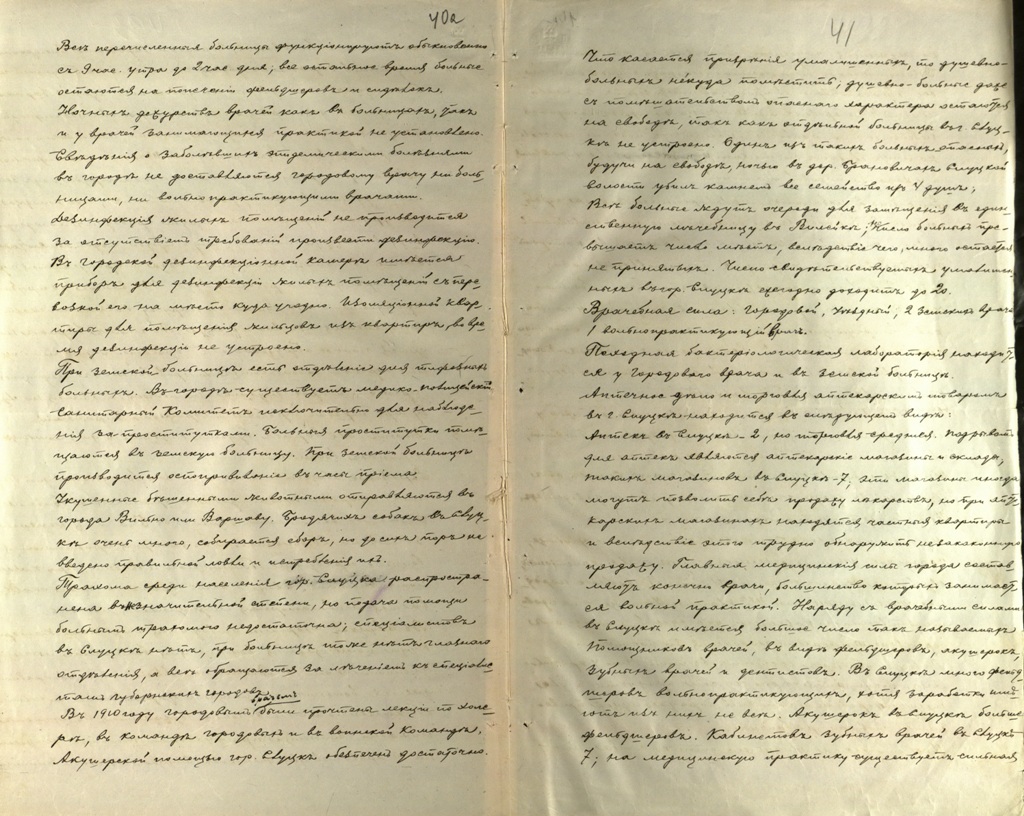 40а
Всѣ перечисленныя больницы функціонируютъ обыкновенно
съ 9 час. утра до 2 час. дня; все остальное время больные
остаются на попеченіи фельдшеровъ и сидѣлокъ.
Ночныхъ дежурствъ врачей какъ въ больницахъ, такъ
и у врачей занимающихся практикой не установлено.
Свѣдѣнія о заболѣвшихъ эпидемическими болѣзнями
въ городѣ не доставляются городовому врачу ни боль-
ницами, ни вольнопрактикующими врачами.
Дезинфекція жилыхъ помѣщеній не производится
за отсутствіемъ требованій произвести дезинфекцію.
Въ городской дезинфекціонной камерѣ имѣется
приборъ для дезинфекціи жилыхъ помѣщеній съ пере-
возкой его на мѣсто куда угодно. Изоляціонной квар-
тиры для помѣщенія жильцовъ изъ квартиръ во вре-
мя дезинфекціи не устроено.
При земской больницѣ есть отдѣленіе для тифозныхъ
больныхъ. Въ городѣ существуетъ медико-полицейскій
Санитарный Комитетъ исключительно для наблюде-
нія за проститутками. Больныя проститутки помѣ-
щаются въ земскую больницу. При земской больницѣ
производится оспопрививаніе въ часы пріема.
Укушенные бѣшенными животными отправляются въ
города Вильно или Варшаву. Бродячихъ собакъ въ Слуц-
кѣ очень много, собирается сборъ, но до сихъ поръ не
введено правильной ловли и истребленія ихъ.
Трахома среди населенія гор. Слуцка распростра-
нена въ значительной степени, но подача помощи
больнымъ трахомою недостаточна; спеціалистовъ
въ Слуцкѣ нѣтъ, при больницѣ тоже нѣтъ глазного
отдѣленія, а всѣ обращаются за лѣченіемъ къ спеціалис-
тамъ губернскихъ городовъ.
Въ 1910 году городовымъ врачемъ были прочтены лекціи по холе-
рѣ, въ командѣ городовыхъ и въ воинской командѣ.
Акушерской помощью гор. Слуцкъ обезпеченъ достаточно.
41
Что касается призрѣнія умалишенныхъ, то душевно-
больныхъ некуда помѣстить; душевно-больные даже
съ помѣшательствомъ опаснаго характера остаются
на свободѣ, такъ какъ отдѣльной больницы въ г. Слуц-
кѣ не устроено. Одинъ изъ такихъ больныхъ опасный,
будучи на свободѣ, ночью въ дер. Брановичахъ Слуцкой
волости убилъ камнемъ все семейство изъ 4 душъ;
Всѣ больные ждутъ очереди для замѣщенія въ един-
ственную лѣчебницу въ Вилейкѣ; Число больныхъ пре-
вышаетъ число мѣстъ, вслѣдствіе чего, много остается
не принятыхъ. Число свидѣтельствуемыхъ умалишен-
ныхъ въ гор. Слуцкѣ ежегодно доходитъ до 20.
Врачебная сила: городовой, уѣздный, 2 земскихъ врача
1 вольнопрактикующій врачъ.
Походная бактеріологическая лабораторія находит-
ся у городового врача и въ земской больницѣ.
Аптечное дѣло и торговля аптекарскимъ товаромъ
въ г. Слуцкѣ находится въ слѣдующемъ видѣ:
Аптекъ въ Слуцкѣ 2, но торговля средняя. Подрывомъ
для аптекъ являются аптекарскіе магазины и склады,
такихъ магазиновъ въ Слуцкѣ-7, эти магазины иногда
могутъ позволить себѣ продажу лѣкарствъ, но при апте-
карскихъ магазинахъ находятся частныя квартиры
и вслѣдствіе этого трудно обнаружить незаконную
продажу. Главныя медицинскія силы города состав-
ляютъ конечно врачи, большинство которыхъ занимает-
ся вольной практикой. Наряду съ врачебными силами
въ Слуцкѣ имѣется большое число такъ называемыхъ
Помощниковъ врачей, въ видѣ фельдшеровъ, акушерокъ,
зубныхъ врачей и дентистовъ. Въ Слуцкѣ много фельд-
шеровъ вольнопрактикующихъ, хотя заработки имѣ-
ютъ изъ нихъ не всѣ. Акушерокъ въ Слуцкѣ больше
фельдшеровъ. Кабинетовъ зубныхъ врачей въ Слуцкѣ
7; на медицинскую практику существуетъ сильная